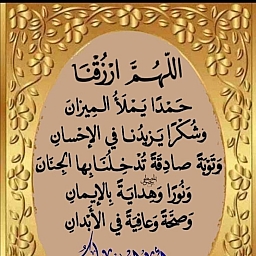 اللّهُمَّ ارْزُقْنَا
حَمْدًا يَمْلَأُ المِيزانَ
وَشُكْرًا يَزِيدُنا في الإحْسانِ
وَتَوْبَةً صادِقَةً تُدْخِلُنَا بِها الجِنَانَ
وَنُورًا وَهِدايَةً بِالإيمانِ
وَصِحَّةً وَعافِيَةً في الأَبْدانِ